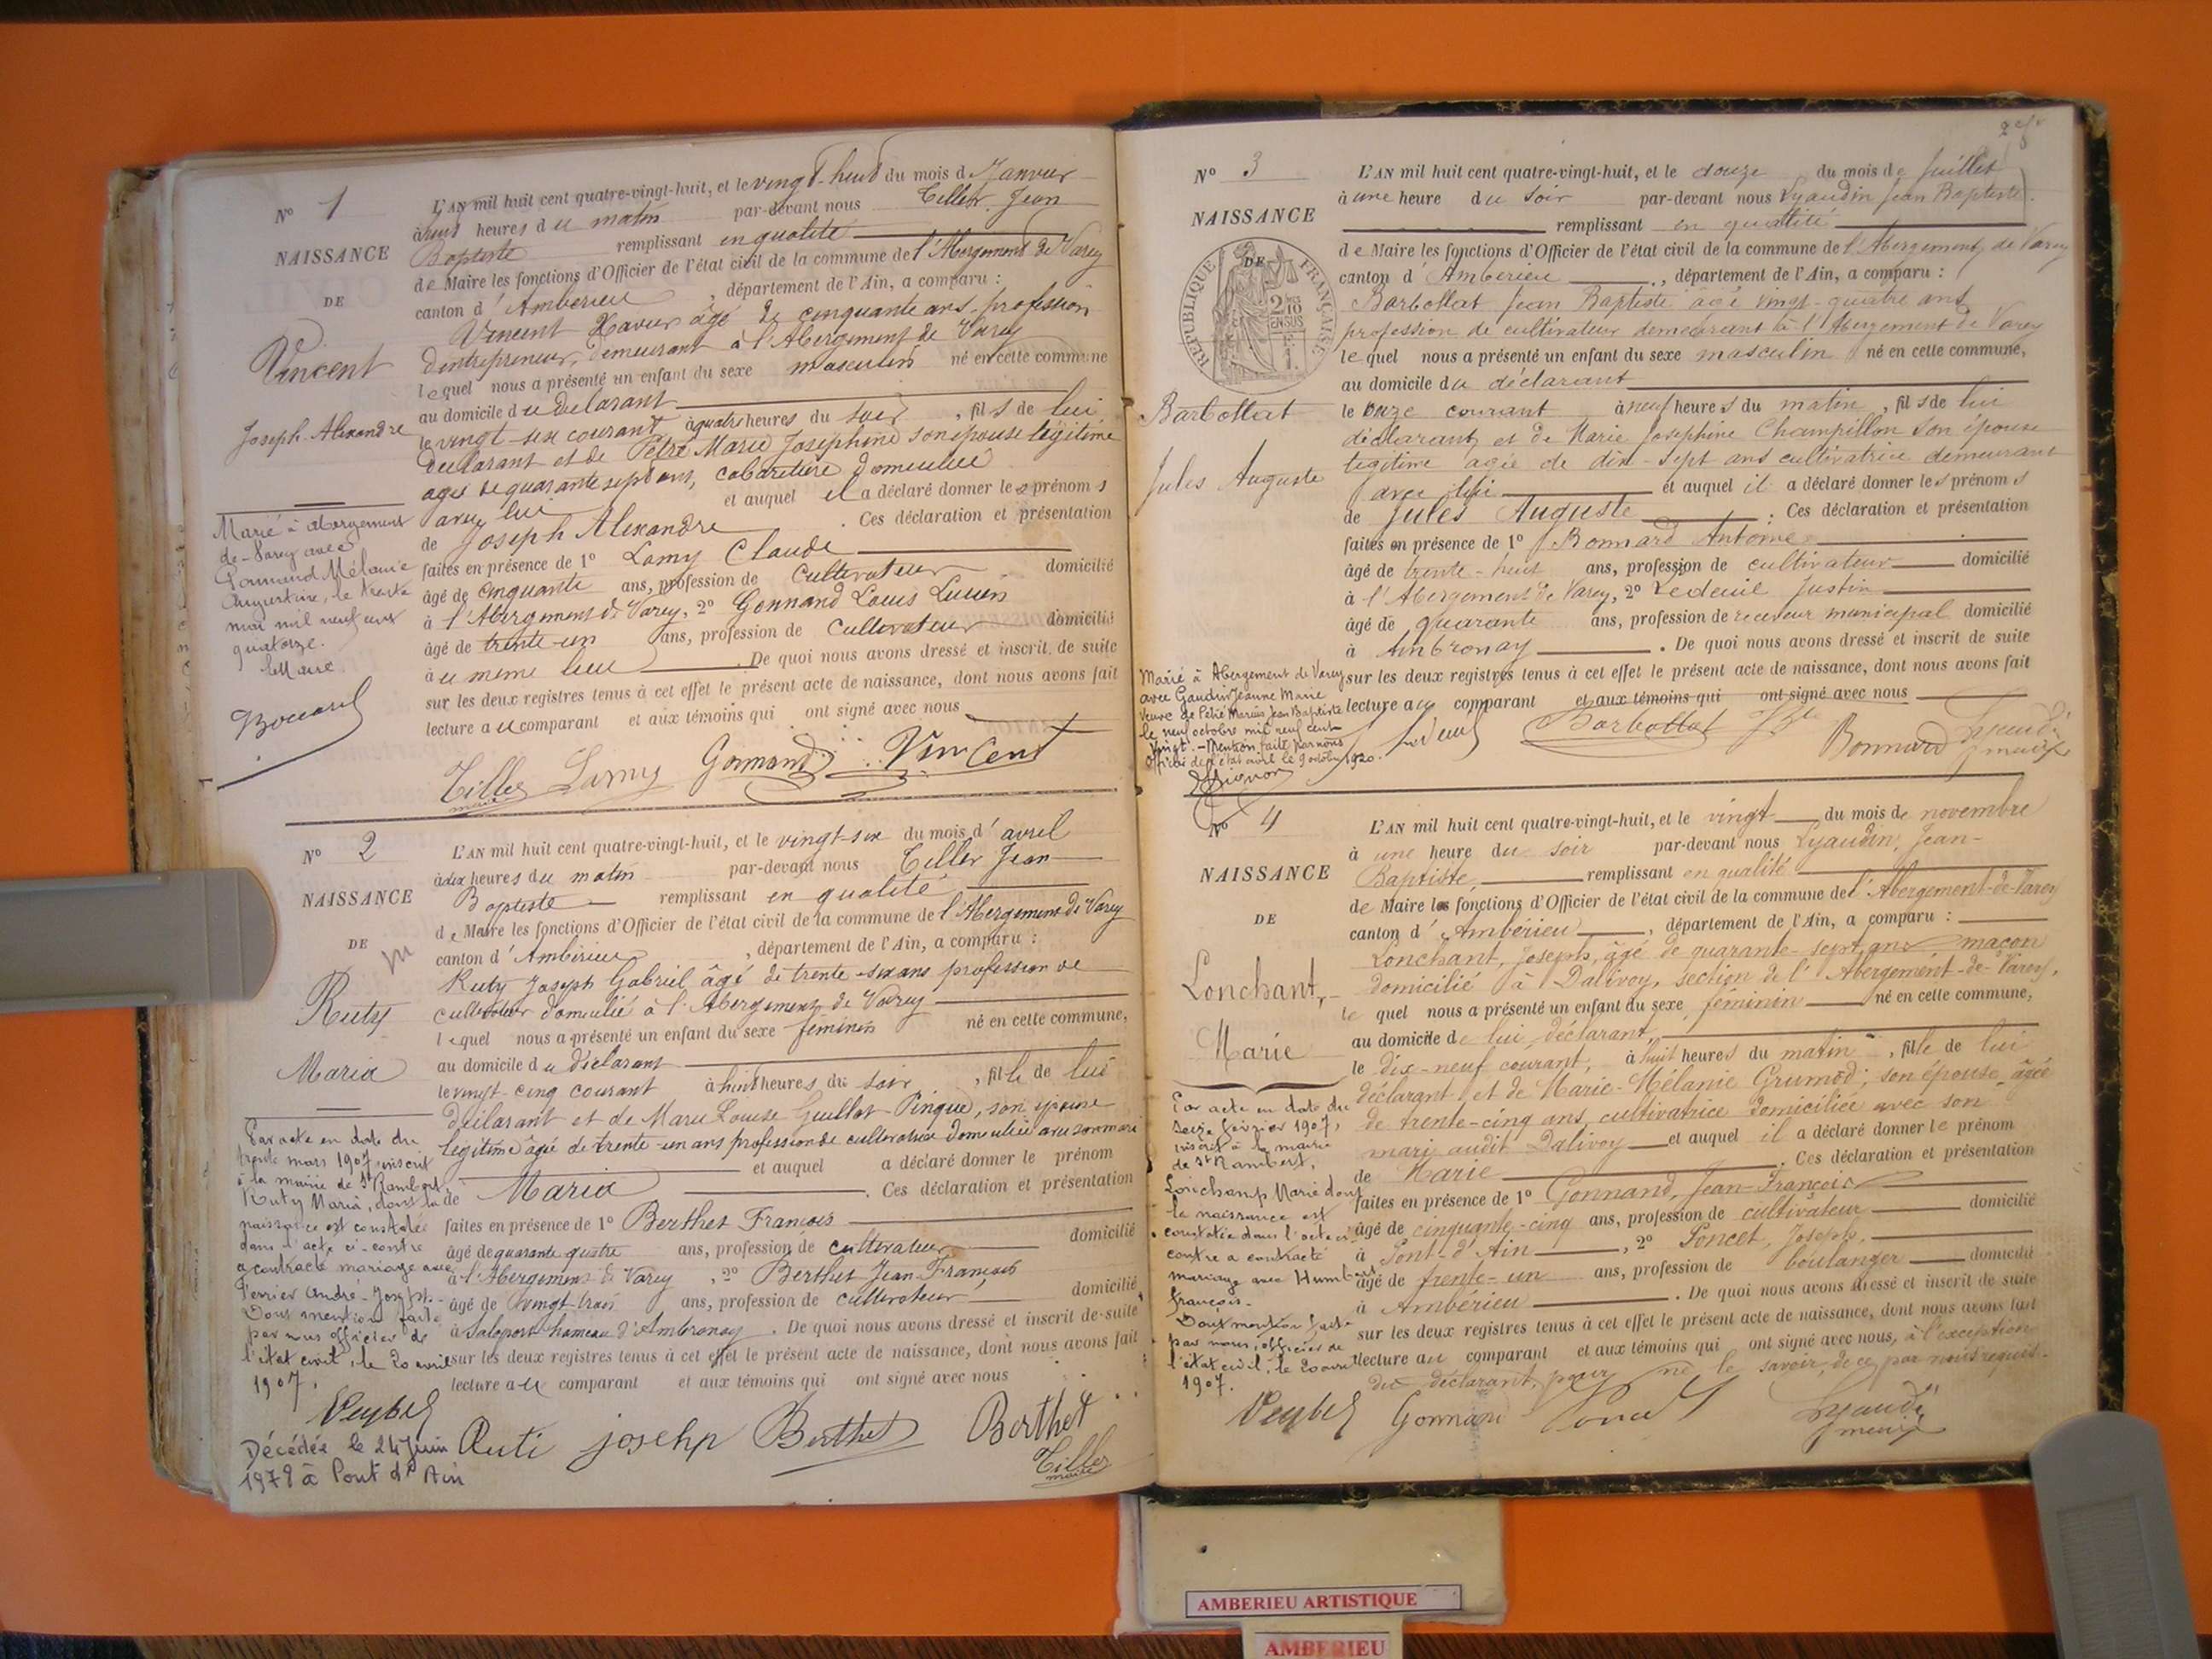 N° 1
NAISSANCE
DE
Vincent
Joseph-Alexandre
L'AN mil huit cent quatre-vingt-huit, et le vingt-huit du mois d Janvier
heures du matin par-devant nous Tiller Jean
Baptiste remplissant en qualité
de Maire les fonctions d'Officier de l'état civil de la commune de l'Abergement de Varey
canton d'Ambérieu, département de l'Ain, a comparu :
Vincent Xavier âgé de cinquante ans, profession
d'entrepreneur, demeurant à l'Abergement de Varey
lequel nous a présenté un enfant du sexe masculin né en cette commune
au domicile du déclarant
le vingt-six courant à quatre heures du soir, fils de lui
déclarant et de Pétré Marie Josephine son épouse légitime
agée de quarante sept ans, cabaretière domiciliée
avec lui et auquel il a déclaré donner les prénoms
de Joseph Alexandre. Ces déclaration et présentation
faites en présence de 1° Lamy Claude
âgé de cinquante ans, profession de cultivateur domicilié
à l'Abergement de Varey, 2° Gonnand Louis Lucien
âgé de trente-un ans, profession de cultivateur domicilié
au meme lieu. De quoi nous avons dressé et inscrit de suite
sur les deux registres tenus à cet effet le présent acte de naissance, dont nous avons fait
lecture au comparant et aux témoins qui ont signé avec nous
Tiller Lamy Gonnand Vincent
maire
Marié à Abergement
de-Varey avec
Gonnand Mélanie
Augustine, le trente
mai mil neuf cent
quatorze.
Le Maire
N° 2
NAISSANCE
DE
Ruty
Maria
L'AN mil huit cent quatre-vingt-huit, et le vingt-six du mois d'avril
à dix heures du matin par-devant nous Tiller Jean
Baptiste remplissant en qualité
de Maire les fonctions d'Officier de l'état civil de la commune de l'Abergement de Varey
canton d'Ambérieu, département de l'Ain, a comparu :
Ruty Joseph Gabriel âgé de trente-six ans profession de
cultivateur domicilié à l'Abergement de Varey
lequel nous a présenté un enfant du sexe féminin né en cette commune,
au domicile du déclarant
le vingt-cinq courant à huit heures du soir, fille de lui
déclarant et de Marie Louise Guillot-Pingue, son épouse
légitime âgée de trente-un ans profession de cultivatrice domiciliée avec son mari
et auquel a déclaré donner le prénom
de Maria. Ces déclaration et présentation
faites en présence de 1° Berthet Francois
âgé de quarante quatre ans, profession de cultivateur domicilié
à l'Abergement de Varey, 2° Berthet Jean François
âgé de vingt-trois ans, profession de cultivateur domicilié
à Salaport hameau d'Ambronay. De quoi nous avons dressé et inscrit de suite
sur les deux registres tenus à cet effet le présent acte de naissance, dont nous avons fait
lecture au comparant et aux témoins qui ont signé avec nous
Ruti josehp Berthet Berthet
Tiller
maire
Par acte en date du
trente mars 1907, inscrit
à la mairie de St Rambert,
Ruty Maria, dont la
naissance est constatée
dans l'acte ci-contre
a contracté mariage avec
Perrier André-Joseph.
Dont mention faite
par nous officier de
l'état civil, le 20 avril
1907.
Décédée le 24 Juin
197 à Pont d'Ain
N° 3
NAISSANCE
DE
RÉPUBLIQUE FRANÇAISE
Barbollat
Jules Auguste
L'AN mil huit cent quatre-vingt-huit, et le douze du mois de Juillet
à une heure du soir par-devant nous Lyaudin Jean Baptiste
remplissant en qualité
de Maire les fonctions d'Officier de l'état civil de la commune de l'Abergement de Varey
canton d'Ambérieu, département de l'Ain, a comparu :
Barbollat Jean Baptiste âgé vingt-quatre ans
profession de cultivateur demeurant à l'Abergement de Varey
lequel nous a présenté un enfant du sexe masculin né en cette commune,
au domicile du déclarant
le onze courant à neuf heures du matin, fils de lui
déclarant et de Marie Josephine Champillon son épouse
légitime agée de dix-sept ans cultivatrice demeurant
avec lui et auquel il a déclaré donner les prénoms
de Jules Auguste. Ces déclaration et présentation
faites en présence de 1° Bonnard Antoine
âgé de trente-huit ans, profession de cultivateur domicilié
à l'Abergement de Varey, 2° Ledeuil Justin
âgé de quarante ans, profession de receveur municipal domicilié
à Ambronay. De quoi nous avons dressé et inscrit de suite
sur les deux registres tenus à cet effet le présent acte de naissance, dont nous avons fait
lecture au comparant et aux témoins qui ont signé avec nous
Barbollat Bonnard
Marié à Abergement de Varey
avec Gaudin Jeanne Marie
Veuve de Pétré Marius Jean Baptiste
le neuf octobre mil neuf cent
vingt. Mention faite par nous
officier de l'état civil le 9 octobre 1920.
N° 4
NAISSANCE
DE
Lonchant,
Marie
L'AN mil huit cent quatre-vingt-huit, et le vingt du mois de novembre
à une heure du soir par-devant nous Lyaudin, Jean-
Baptiste, remplissant en qualité
de Maire les fonctions d'Officier de l'état civil de la commune de l'Abergement-de-Varey
canton d'Ambérieu, département de l'Ain, a comparu :
Lonchant, Joseph, âgé de quarante-sept ans maçon
domicilié à Dalivoy, section de l'Abergement-de-Varey,
lequel nous a présenté un enfant du sexe féminin né en cette commune,
au domicile de lui déclarant,
le dix-neuf courant, à huit heures du matin, fille de lui
déclarant et de Marie-Mélanie Grumod, son épouse, âgée
de trente-cinq ans, cultivatrice domiciliée avec son
mari audit Dalivoy et auquel il a déclaré donner le prénom
de Marie. Ces déclaration et présentation
faites en présence de 1° Gonnand, Jean-François
âgé de cinquante-cinq ans, profession de cultivateur domicilié
à Pont-d'Ain, 2° Poncet, Joseph,
âgé de trente-un ans, profession de boulanger domicilié
à Ambérieu. De quoi nous avons dressé et inscrit de suite
sur les deux registres tenus à cet effet le présent acte de naissance, dont nous avons fait
lecture au comparant et aux témoins qui ont signé avec nous, à l'exception
du déclarant, pour ne le savoir, de ce par nous requis.
Gonnand Poncet Lyaudin
maire
Par acte en date du
seize février 1907,
inscrit à la mairie
de St Rambert,
Lonchamp Marie dont
la naissance est
constatée dans l'acte ci-
contre a contracté
mariage avec Humbert
François.
Dont mention faite
par nous, officier de
l'état civil, le 20 avril
1907.
AMBERIEU ARTISTIQUE
AMBERIEU